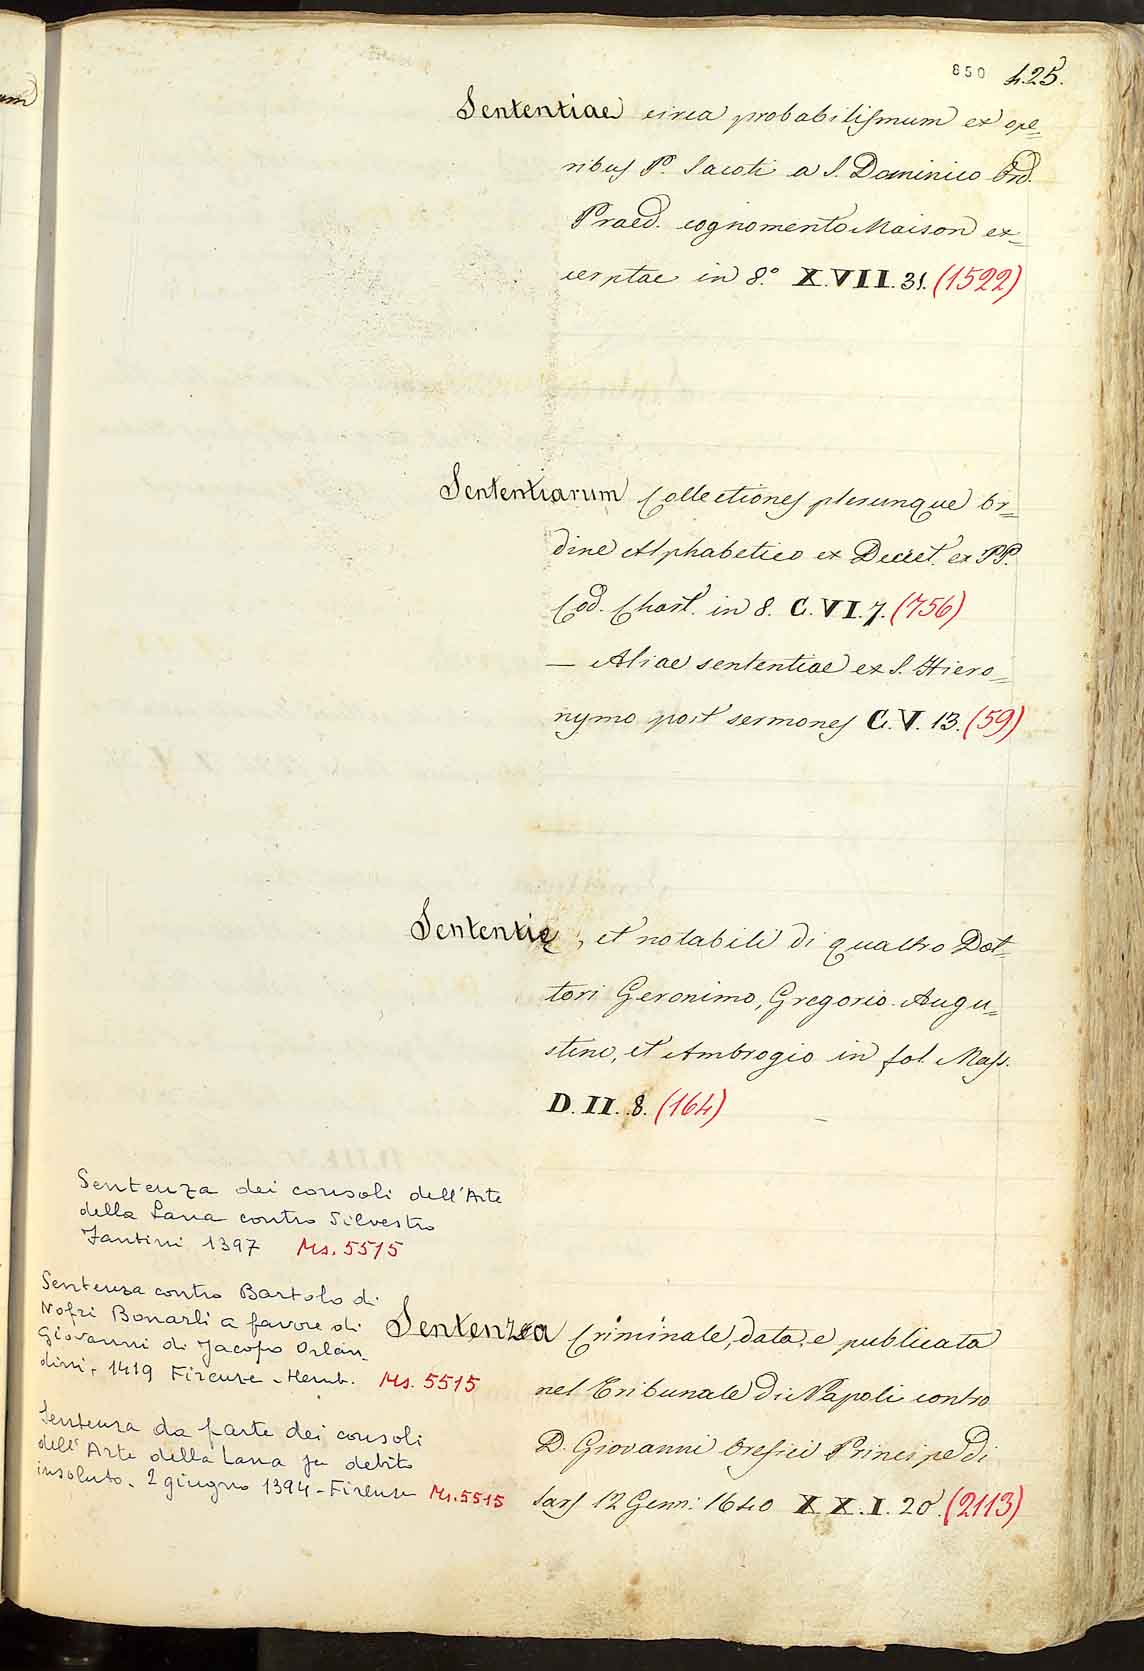 850 425.
Sententiae circa probabilismum ex ope=
ribus P. Jacobi a S. Dominico Ord.
Praed. cognomento Maison ex=
cerptae in 8.° X.VII.31. (1522)
Sententiarum Collectiones plerunque Or=
dine Alphabetico ex Decret. ex PP.
Cod. Chart. in 8. C.VI.7. (756)
— Aliae sententiae ex S. Hiero=
nymo post sermones C.V.13. (59)
Sententie, et notabili di quattro Dot=
tori Geronimo, Gregorio. Augu=
stino, et Ambrogio in fol. Mass.
D.II.8. (164)
Sentenza dei consoli dell'Arte
della Lana contro Silvestro
Fantini 1397 Ms. 5515
Sentenza contro Bartolo di
Nofri Bonarli a favore di
Giovanni di Jacopo Orlan-
dini, 1419 Firenze - Memb. Ms. 5515
Sentenza da parte dei consoli
dell'Arte della Lana per debito
insoluto. 2 giugno 1394 - Firenze Ms. 5515
Sentenza Criminale, data, e publicata
nel Tribunale di Napoli contro
D. Giovanni Orefici Principe di
Sans 12 Genn: 1640 XX.I.20. (2113)